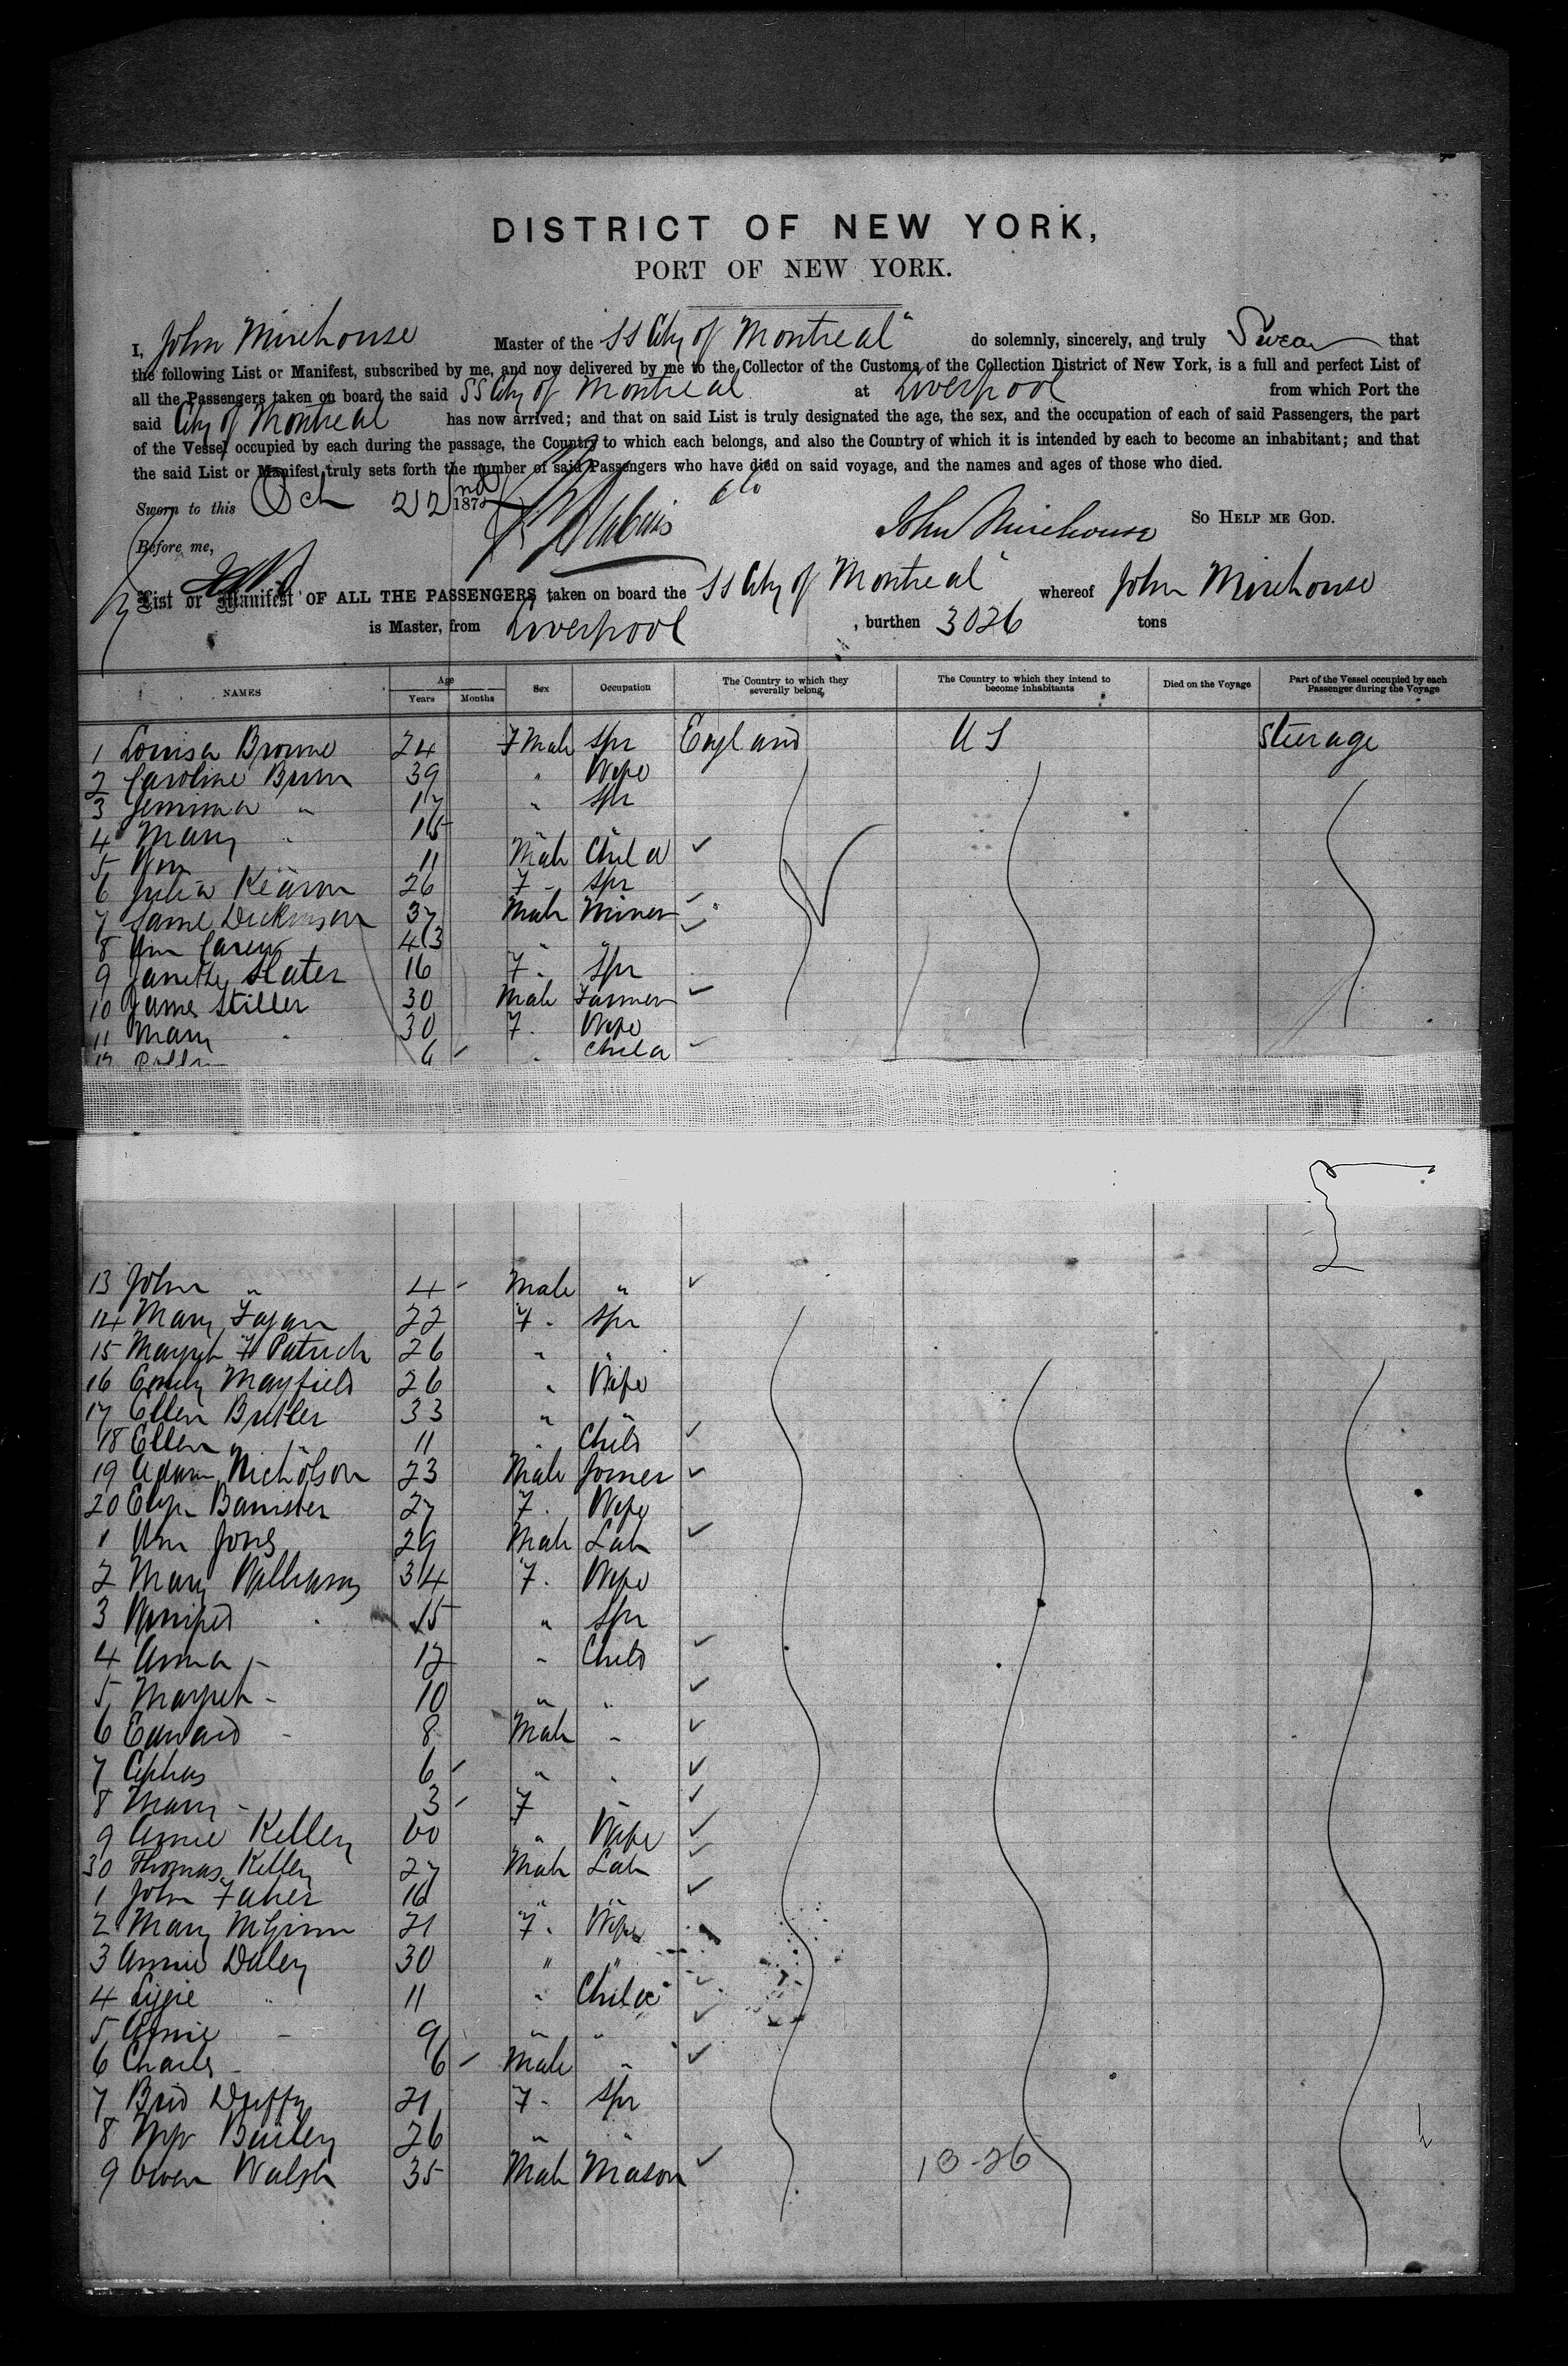 DISTRICT OF NEW YORK,
PORT OF NEW YORK.
I, John Mirehouse Master of the "SS City of Montreal" do solemnly, sincerely, and truly Swear that
the following List or Manifest, subscribed by me, and now delivered by me to the Collector of the Customs of the Collection District of New York, is a full and perfect List of
all the Passengers taken on board the said SS City of Montreal at Liverpool from which Port the
said City of Montreal has now arrived; and that on said List is truly designated the age, the sex, and the occupation of each of said Passengers, the part
of the Vessel occupied by each during the passage, the Country to which each belongs, and also the Country of which it is intended by each to become an inhabitant; and that
the said List or Manifest truly sets forth the number of said Passengers who have died on said voyage, and the names and ages of those who died.
Sworn to this Oct 22nd 187
John Mirehouse SO HELP ME GOD.
Before me,
List or Manifest OF ALL THE PASSENGERS taken on board the "SS City of Montreal" whereof John Mirehouse
is Master, from Liverpool , burthen 3026 tons
NAMES Age Years Months Sex Occupation The Country to which they severally belong The Country to which they intend to become inhabitants Died on the Voyage Part of the Vessel occupied by each Passenger during the Voyage
1 Louisa Browne 24 F Male Spr England US Steerage
2 Caroline Brown 39 " Wife
3 Jemima " 17 " Spr
4 Mary " 15
5 Wm 11 Male Child
6 Julia Kearon 26 F " Spr
7 Jame Dickinson 37 Male Miner
8 Wm Carey 43 " "
9 Janette Slater 16 F " Spr
10 James Stiller 30 Male Farmer
11 Mary " 30 F " Wife
12 6 " Child
13 John " 4 Male "
14 Mary Fagan 22 F " Spr
15 Margret Fz Patrick 26 " "
16 Emily Mayfield 26 " Wife
17 Ellen Butler 33 " "
18 Ellen " 11 " Child
19 Adam Nicholson 23 Male Joiner
20 Eliza Banister 27 F " Wife
1 Wm Jones 29 Male Lab
2 Mary Williams 34 F " Wife
3 Winifred " 15 " Spr
4 Anna " 12 " Child
5 Margret " 10 " "
6 Edward " 8 Male "
7 Cephas 6 " "
8 Mary " 3 F "
9 Annie Kelley 60 " Wife
30 Thomas Kelley 27 Male Lab
1 John Faher 16 " "
2 Mary McGinn 21 F " Wife
3 Annie Daley 30 " "
4 Lizzie " 11 " Child
5 Annie " 9 " "
6 Charles " 6 Male "
7 Brid Duffy 21 F " Spr
8 Bailey 26 " "
9 Owen Walsh 35 Male Mason 10-26